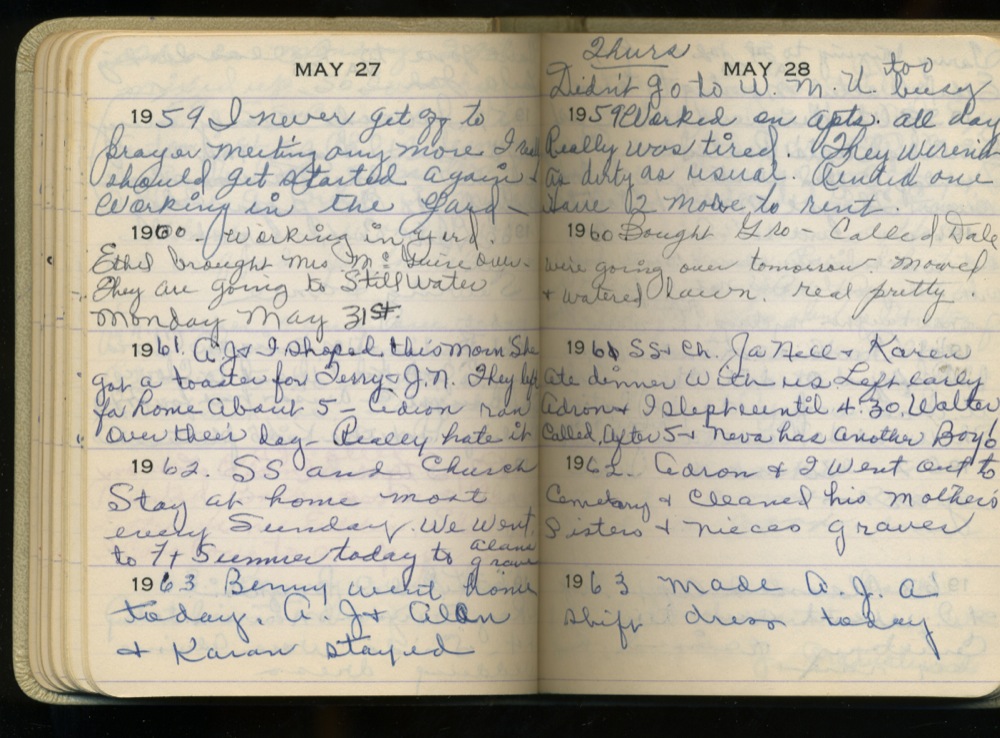 MAY 27
1959 I never get to go to
prayer meeting any more I
should get started again &
Working in the Yard -
1960. Working in yerd.
Ethel brought Mrs McGuire over -
They are going to Stillwater
Monday May 31st.
1961. A.J & I shoped this morn She
got a toaster for Terry & J.N. They left
for home about 5 - Adron ran
Over their dog - Really hate it
1962. SS and Church
Stay at home most
every Sunday. We went
to Ft Sumner today to Alans
grave
1963 Benny went home
today. A.J & Alan
& Karan stayed
Thurs
MAY 28
Didn't go to W. M. U. too
busy
1959 Worked on apts. all day
Really was tired. They weren't
as dirty as usual. Rented one
Have 2 more to rent.
1960 Bought Gro - Called Dale
we're going over tomorrow. mowed
& watered lawn. real pretty.
1961 SS & Ch. JaNell & Karen
ate dinner with us Left early
Adron & I slept until 4:30. Walter
Called, after 5 - Neva has another Boy!
1962. Adron & I went out to
Cemetary & cleaned his mothers
Sisters & nieces graves
1963 made A.J. a
shift dress today